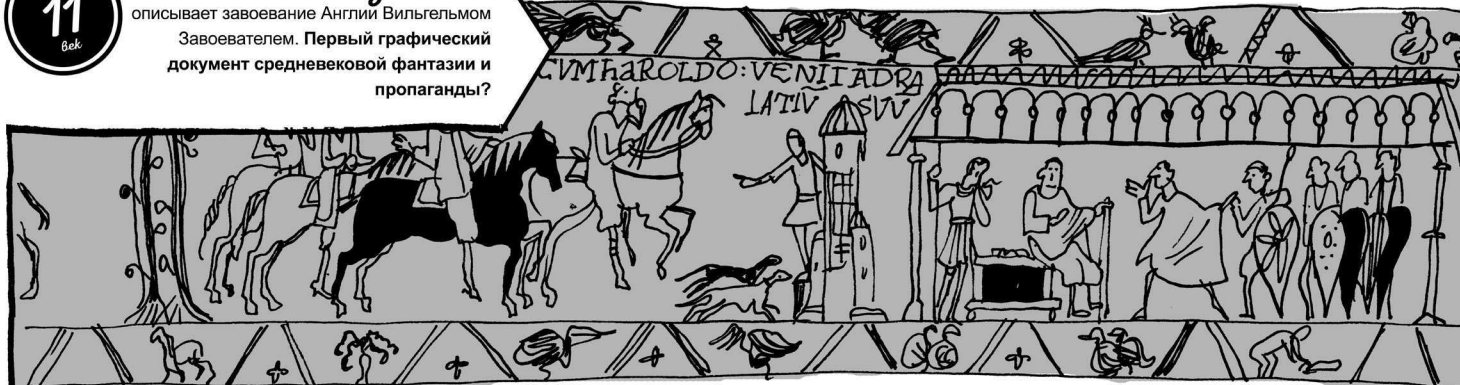 11
век
описывает завоевание Англии Вильгельмом
Завоевателем. Первый графический
документ средневековой фантазии и
пропаганды?
CVM hAROLDO: VENIT AD RA
LATIV SVV